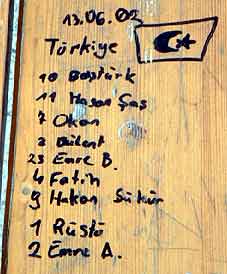 13.06.02
Türkiye
10 Baştürk
11 Hasan Şaş
7 Okan
3 Bülent
23 Emre B.
4 Fatih
9 Hakan Şükür
1 Rüştü
2 Emre A.